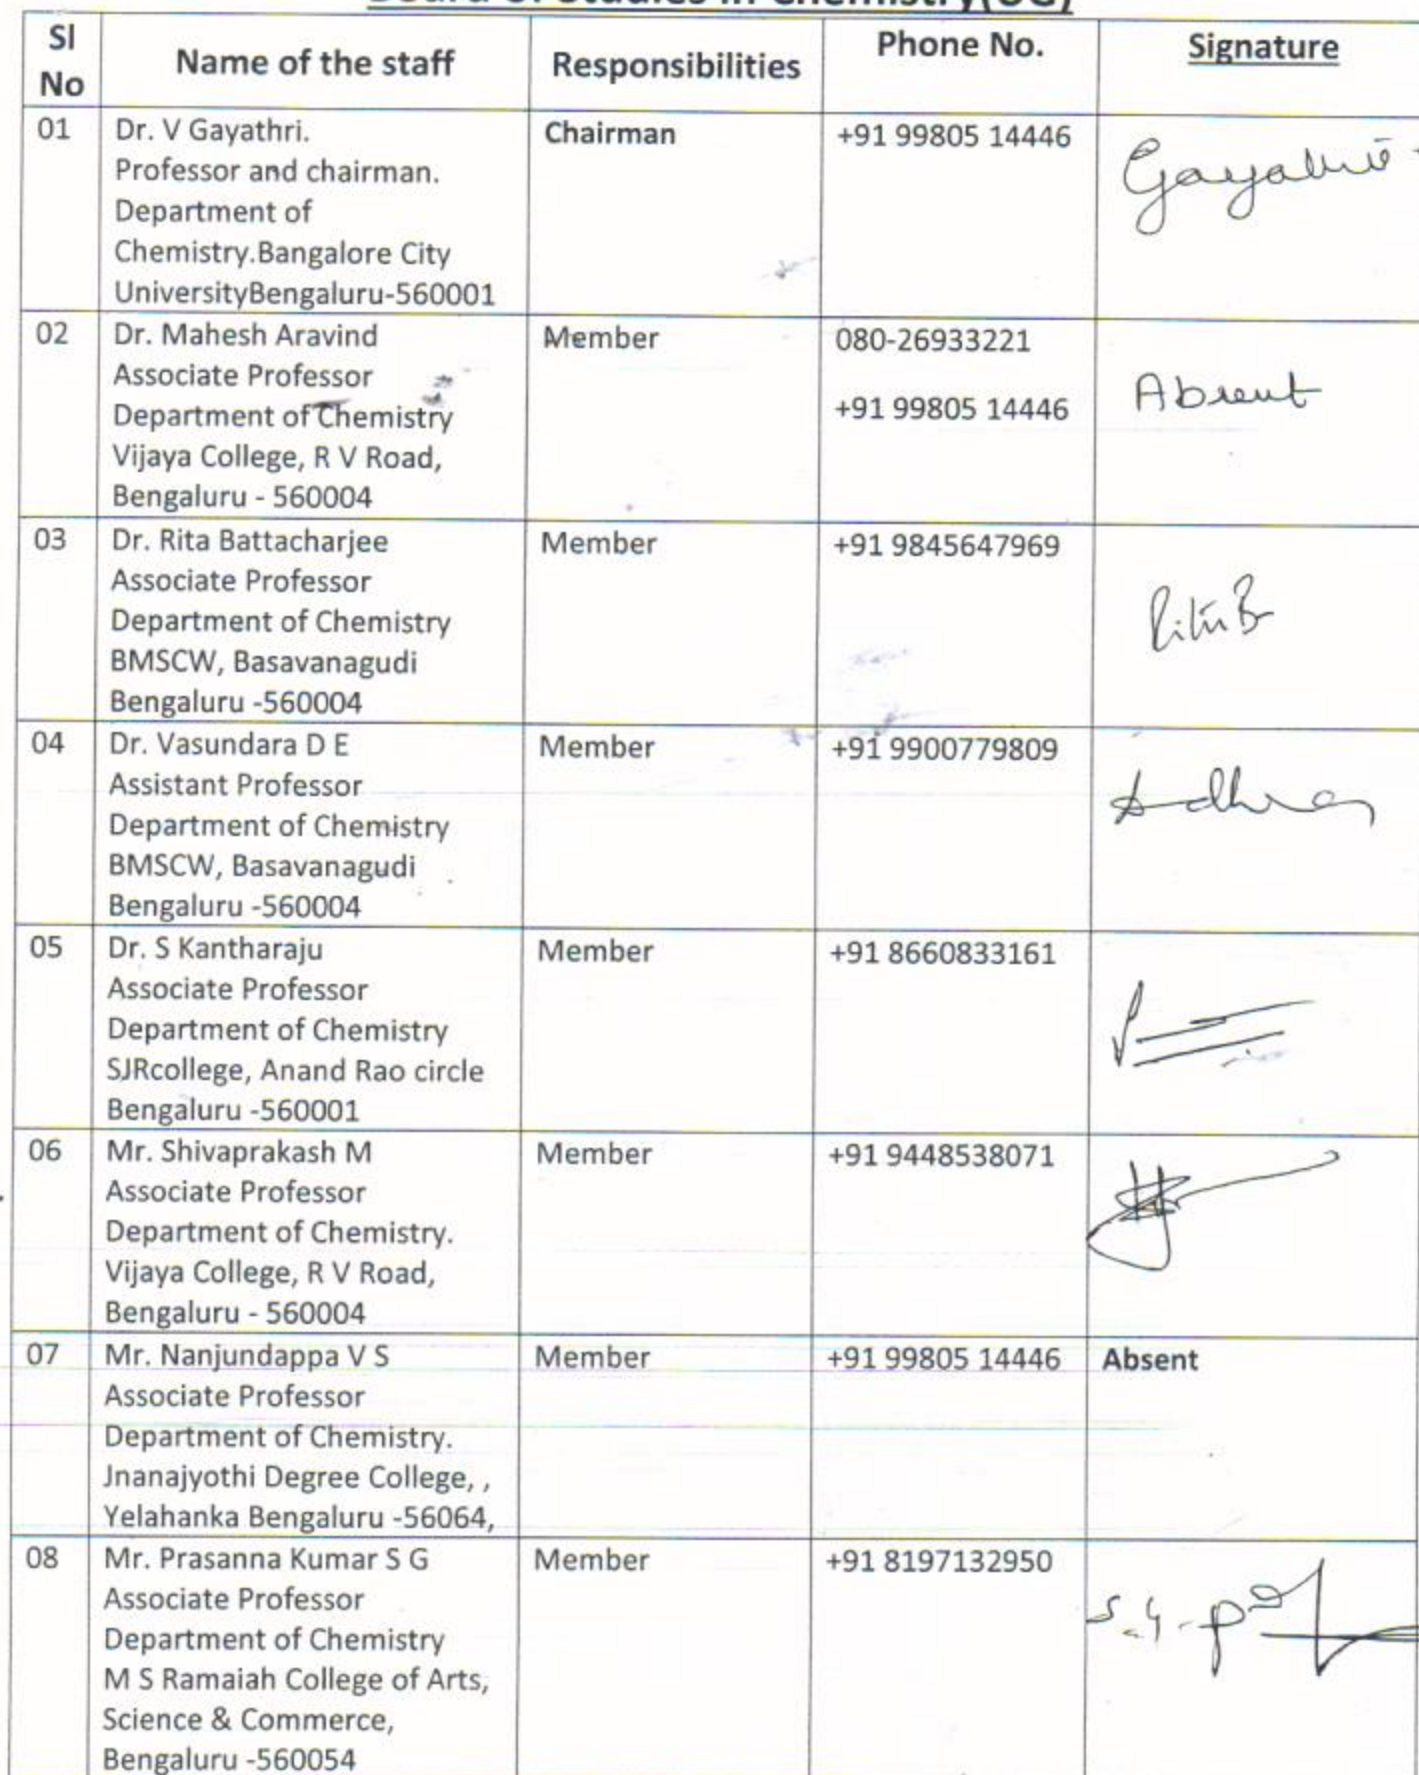 Board of Studies in Chemistry(UG)
Sl No
Name of the staff
Responsibilities
Phone No.
Signature
01
Dr. V Gayathri.
Professor and chairman.
Department of
Chemistry.Bangalore City
UniversityBengaluru-560001
Chairman
+91 99805 14446
Gayathri
02
Dr. Mahesh Aravind
Associate Professor
Department of Chemistry
Vijaya College, R V Road,
Bengaluru - 560004
Member
080-26933221
+91 99805 14446
Absent
03
Dr. Rita Battacharjee
Associate Professor
Department of Chemistry
BMSCW, Basavanagudi
Bengaluru -560004
Member
+91 9845647969
04
Dr. Vasundara D E
Assistant Professor
Department of Chemistry
BMSCW, Basavanagudi
Bengaluru -560004
Member
+91 9900779809
05
Dr. S Kantharaju
Associate Professor
Department of Chemistry
SJRcollege, Anand Rao circle
Bengaluru -560001
Member
+91 8660833161
06
Mr. Shivaprakash M
Associate Professor
Department of Chemistry.
Vijaya College, R V Road,
Bengaluru - 560004
Member
+91 9448538071
07
Mr. Nanjundappa V S
Associate Professor
Department of Chemistry.
Jnanajyothi Degree College, ,
Yelahanka Bengaluru -56064,
Member
+91 99805 14446
Absent
08
Mr. Prasanna Kumar S G
Associate Professor
Department of Chemistry
M S Ramaiah College of Arts,
Science & Commerce,
Bengaluru -560054
Member
+91 8197132950